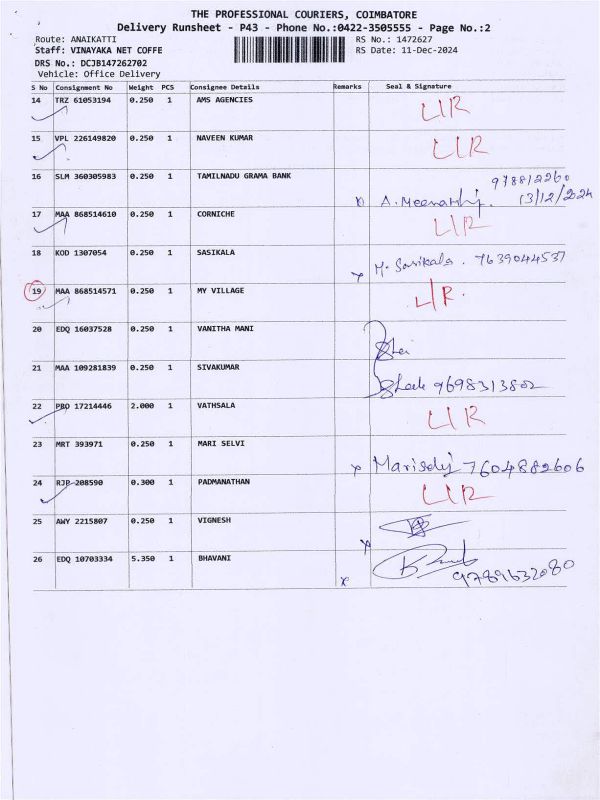 THE PROFESSIONAL COURIERS, COIMBATORE
Delivery Runsheet - P43 - Phone No.:0422-3505555 - Page No.:2
Route: ANAIKATTI RS No.: 1472627
Staff: VINAYAKA NET COFFE RS Date: 11-Dec-2024
DRS No.: DCJB147262702
Vehicle: Office Delivery
S No Consignment No Weight PCS Consignee Details Remarks Seal & Signature
14 TRZ 61053194 0.250 1 AMS AGENCIES LIR
15 VPL 226149820 0.250 1 NAVEEN KUMAR LIR
16 SLM 360305983 0.250 1 TAMILNADU GRAMA BANK
978812260
A. Meenakshi. 13/12/2024
17 MAA 868514610 0.250 1 CORNICHE LIR
18 KOD 1307054 0.250 1 SASIKALA M. Sasikala. 7639044537
19 MAA 868514571 0.250 1 MY VILLAGE LIR.
20 EDQ 16037528 0.250 1 VANITHA MANI
21 MAA 109281839 0.250 1 SIVAKUMAR 9698313802
22 PRO 17214446 2.000 1 VATHSALA LIR
23 MRT 393971 0.250 1 MARI SELVI 7604882606
24 RJP 208590 0.300 1 PADMANATHAN LIR
25 AWY 2215807 0.250 1 VIGNESH
26 EDQ 10703334 5.350 1 BHAVANI 9789632080